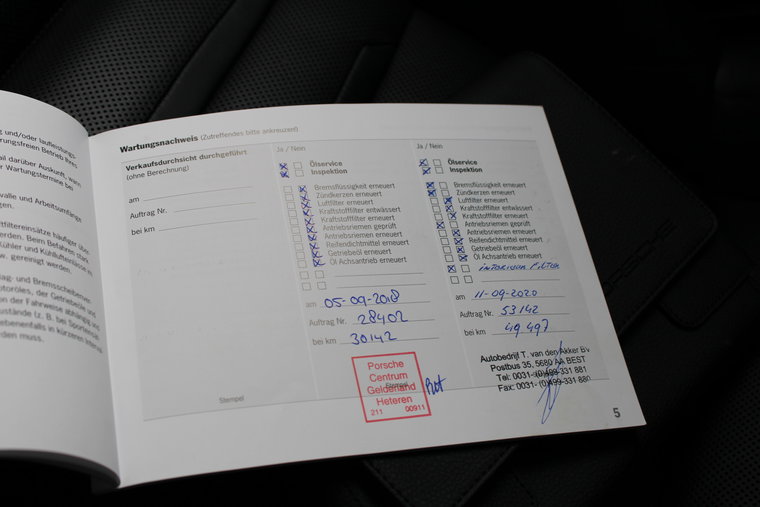 g und/oder laufleistungs-
rungsfreien Betrieb Ihres
il darüber Auskunft, wann
r Wartungstermine bei
valle und Arbeitsumfänge
gen.
ftfiltereinsätze häufiger über
erden. Beim Befahren
Kühler und Kühlluftein
w. gereinigt werden.
lag- und Bremsscheiben-
otoröles, der Getriebeöl und
on der Fahrweise abhängig und
zustände (z. B. bei Sport
ebenenfalls in kürzeren Interval
rden muss.
Wartungsnachweis (Zutreffendes bitte ankreuzen!)
Verkaufsdurchsicht durchgeführt
(ohne Berechnung)
am
Auftrag Nr.
bei km
Stempel
Ja / Nein
Ölservice
Inspektion
Bremsflüssigkeit erneuert
Zündkerzen erneuert
Luftfilter erneuert
Kraftstofffilter entwässert
Kraftstofffilter erneuert
Antriebsriemen geprüft
Antriebsriemen erneuert
Reifendichtmittel erneuert
Getriebeöl erneuert
Öl Achsantrieb erneuert
am 05-09-2018
Auftrag Nr. 28402
bei km 30142
Stempel
Porsche
Centrum
Gelderland
Heteren
211 00911
Ja / Nein
Ölservice
Inspektion
Bremsflüssigkeit erneuert
Zündkerzen erneuert
Luftfilter erneuert
Kraftstofffilter entwässert
Kraftstofffilter erneuert
Antriebsriemen geprüft
Antriebsriemen erneuert
Reifendichtmittel erneuert
Getriebeöl erneuert
Öl Achsantrieb erneuert
interieur Filter
am 11-09-2020
Auftrag Nr. 53142
bei km 49497
Autobedrijf T. van den Akker Bv
Postbus 35, 5680 AA BEST
Tel: 0031- (0)499-331 881
Fax: 0031- (0)499-331 880
5